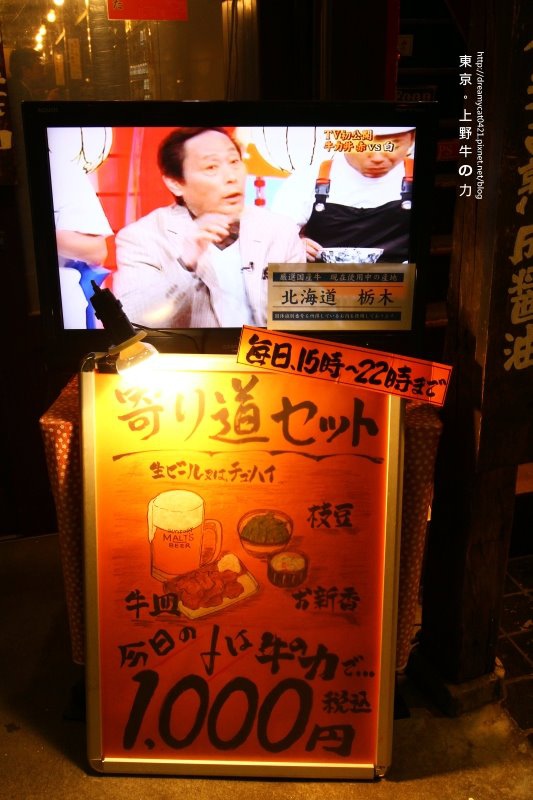 東京。上野牛の力
http://dreamycat0421.pixnet.net/blog
TV初公開
牛力丼 赤 vs 白
厳選国産牛 現在使用中の産地
北海道 栃木
毎日、15時～22時まで
寄り道セット
生ビール又は、チューハイ
MALT'S
BEER
枝豆
牛皿
お新香
今日の〆は牛の力で…
1,000円
税込
醤油